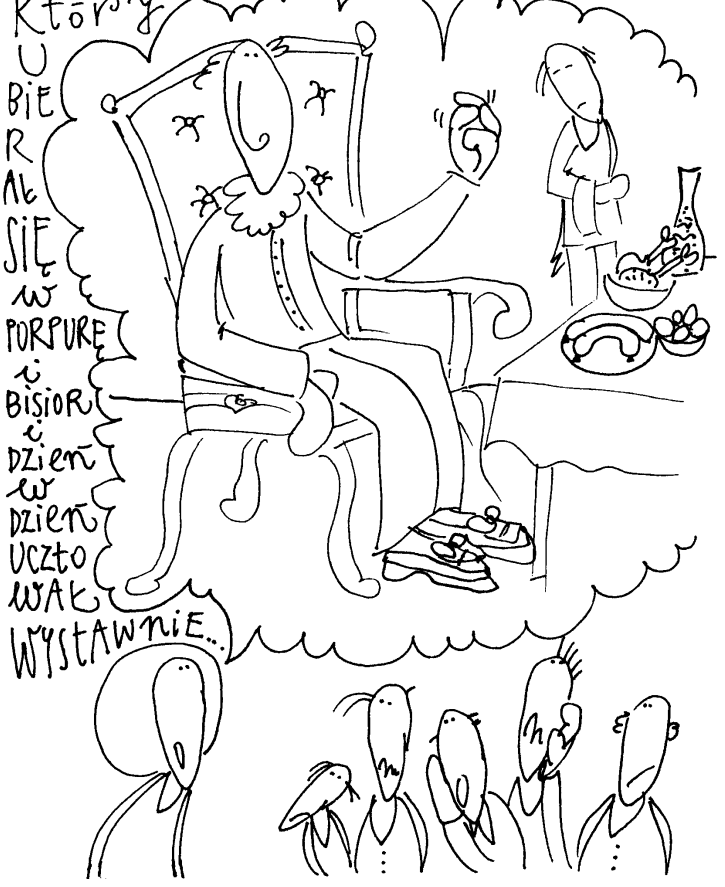 Który
U
BiE
R
AŁ
SIĘ
w
PORPURĘ
i
BISIOR
i
Dzień
w
Dzień
UCZTO
WAŁ
WYSTAWniE...